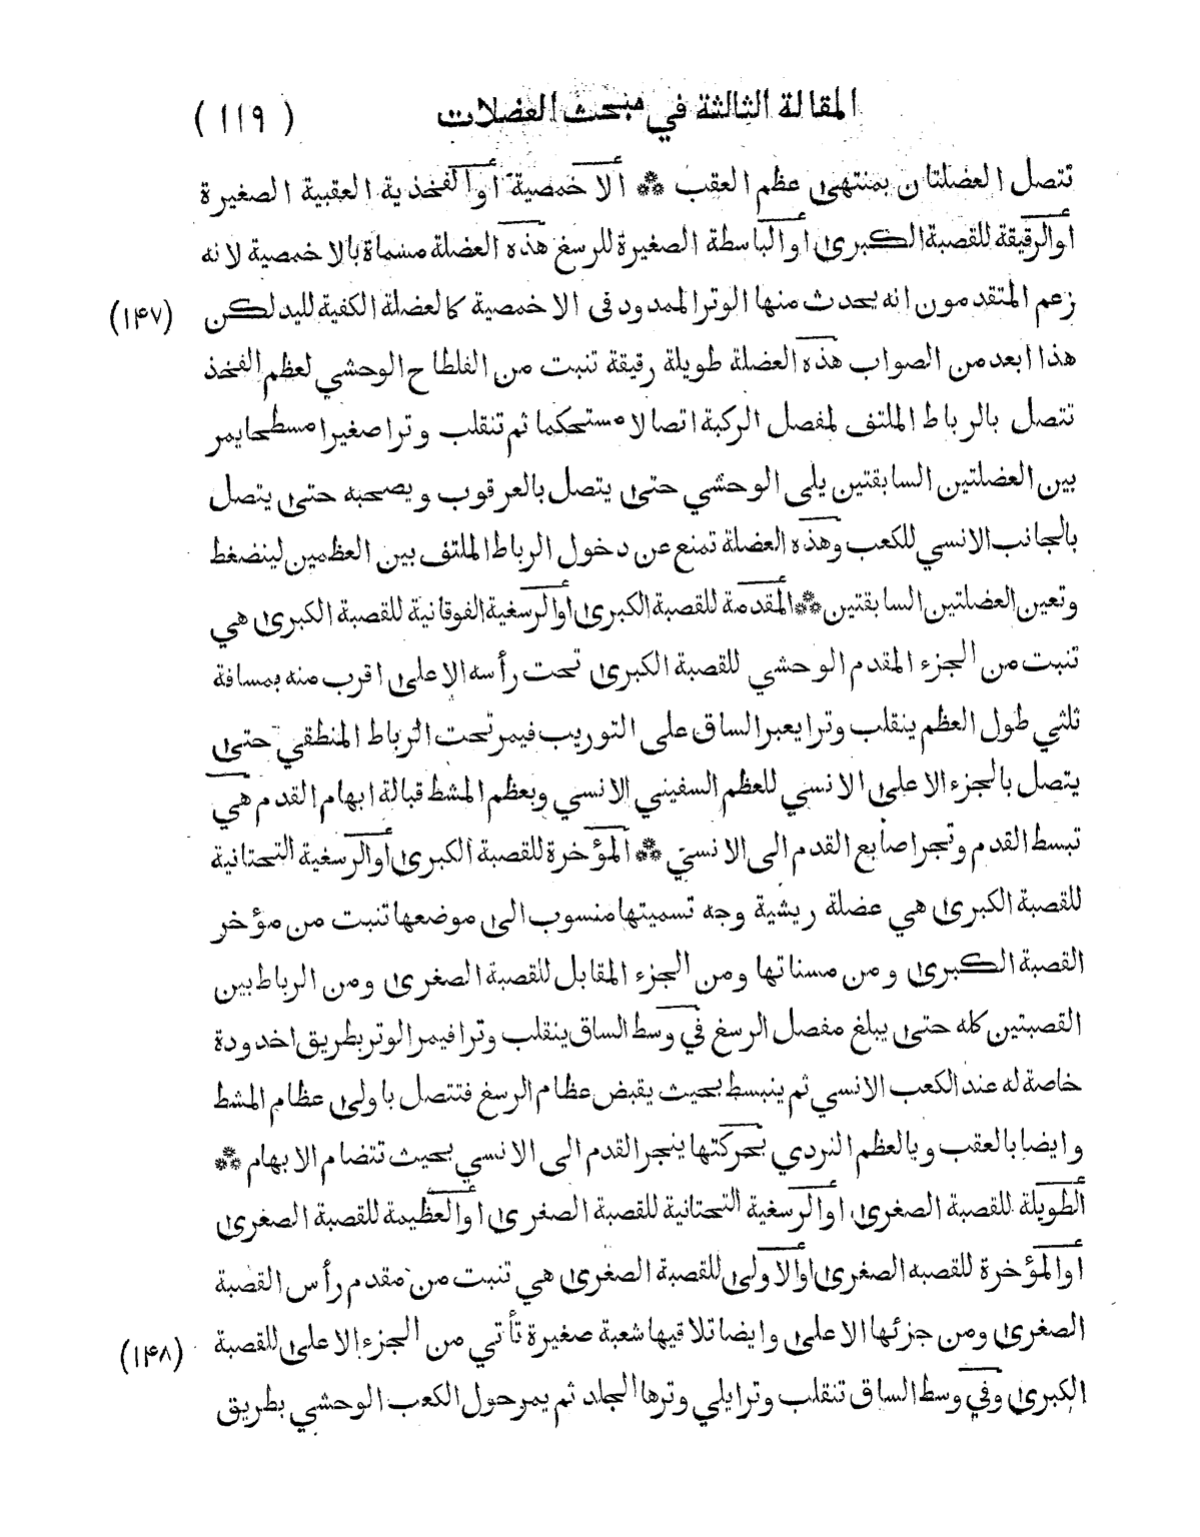 المقالة الثالثة في مبحث العضلات (١١٩)
تتصل العضلتان بمنتهى عظم العقب ⁂ ألاخمصية أوالفخذية العقبية الصغيرة
أوالرقيقة للقصبة الكبرى أوالباسطة الصغيرة للرسغ هذه العضلة مسماة بالاخمصية لانه
زعم المتقدمون انه يحدث منها الوتر الممدود فى الاخمصية كالعضلة الكفية لليد لكن (١۴٧)
هذا ابعد من الصواب هذه العضلة طويلة رقيقة تنبت من الفلطاح الوحشي لعظم الفخذ
تتصل بالرباط الملتف لمفصل الركبة اتصالا مستحكما ثم تنقلب وترا صغيرا مسطحا يمر
بين العضلتين السابقتين يلى الوحشي حتى يتصل بالعرقوب ويصحبه حتى يتصل
بالجانب الانسي للكعب وهذه العضلة تمنع عن دخول الرباط الملتف بين العظمين لينضغط
وتعين العضلتين السابقتين ⁂ ألمقدمة للقصبة الكبرى أوالرسغية الفوقانية للقصبة الكبرى هي
تنبت من الجزء المقدم الوحشي للقصبة الكبرى تحت رأسه الاعلى اقرب منه بمسافة
ثلثي طول العظم ينقلب وترا يعبر الساق على التوريب فيمر تحت الرباط المنطقي حتى
يتصل بالجزء الاعلى الانسي للعظم السفيني الانسي وبعظم المشط قبالة ابهام القدم هي
تبسط القدم وتجر اصابع القدم الى الانسي ⁂ المؤخرة للقصبة الكبرى أوالرسغية التحتانية
للقصبة الكبرى هي عضلة ريشية وجه تسميتها منسوب الى موضعها تنبت من مؤخر
القصبة الكبرى ومن مسناتها ومن الجزء المقابل للقصبة الصغرى ومن الرباط بين
القصبتين كله حتى يبلغ مفصل الرسغ في وسط الساق ينقلب وترا فيمر الوتر بطريق اخدودة
خاصة له عند الكعب الانسي ثم ينبسط بحيث يقبض عظام الرسغ فتتصل باولى عظام المشط
وايضا بالعقب وبالعظم النردي بحركتها ينجر القدم الى الانسي بحيث تتضام الابهام ⁂
ألطويلة للقصبة الصغرى أوالرسغية التحتانية للقصبة الصغرى أوالعظيمة للقصبة الصغرى
أوالمؤخرة للقصبه الصغرى أوالاولى للقصبة الصغرى هي تنبت من مقدم رأس القصبة
الصغرى ومن جزئها الاعلى وايضا تلاقيها شعبة صغيرة تأتي من الجزء الاعلى للقصبة (١۴٨)
الكبرى وفي وسط الساق تنقلب وترا يلي وترها الجلد ثم يمر حول الكعب الوحشي بطريق